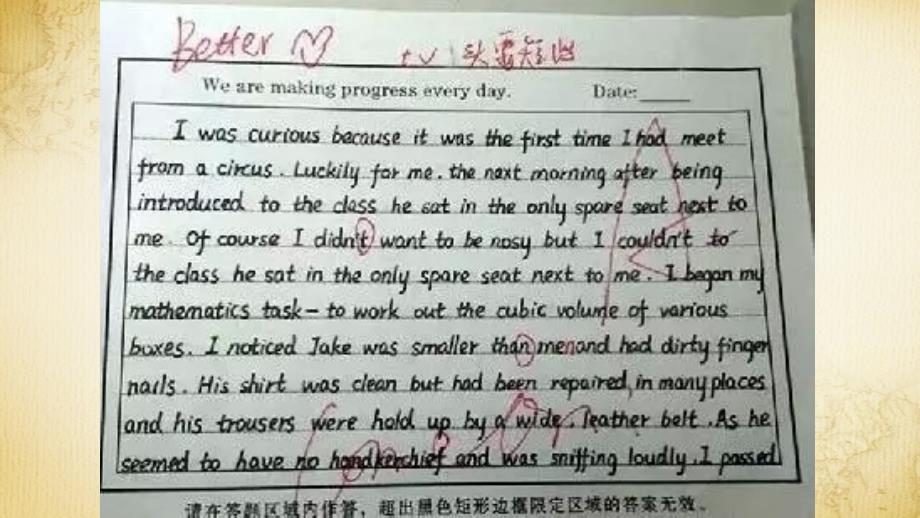 Better
t v 头要短些
We are making progress every day. Date:
I was curious because it was the first time I had meet
from a circus. Luckily for me. the next morning after being
introduced to the class he sat in the only spare seat next to
me. Of course I didn't want to be nosy but I couldn't to
the class he sat in the only spare seat next to me. I began my
mathematics task - to work out the cubic volume of various
boxes. I noticed Jake was smaller than men and had dirty finger
nails. His shirt was clean but had been repaired, in many places
and his trousers were hold up by a wide, leather belt. As he
seemed to have no handkerchief and was sniffing loudly. I passed
请在答题区域内作答，超出黑色矩形边框限定区域的答案无效。